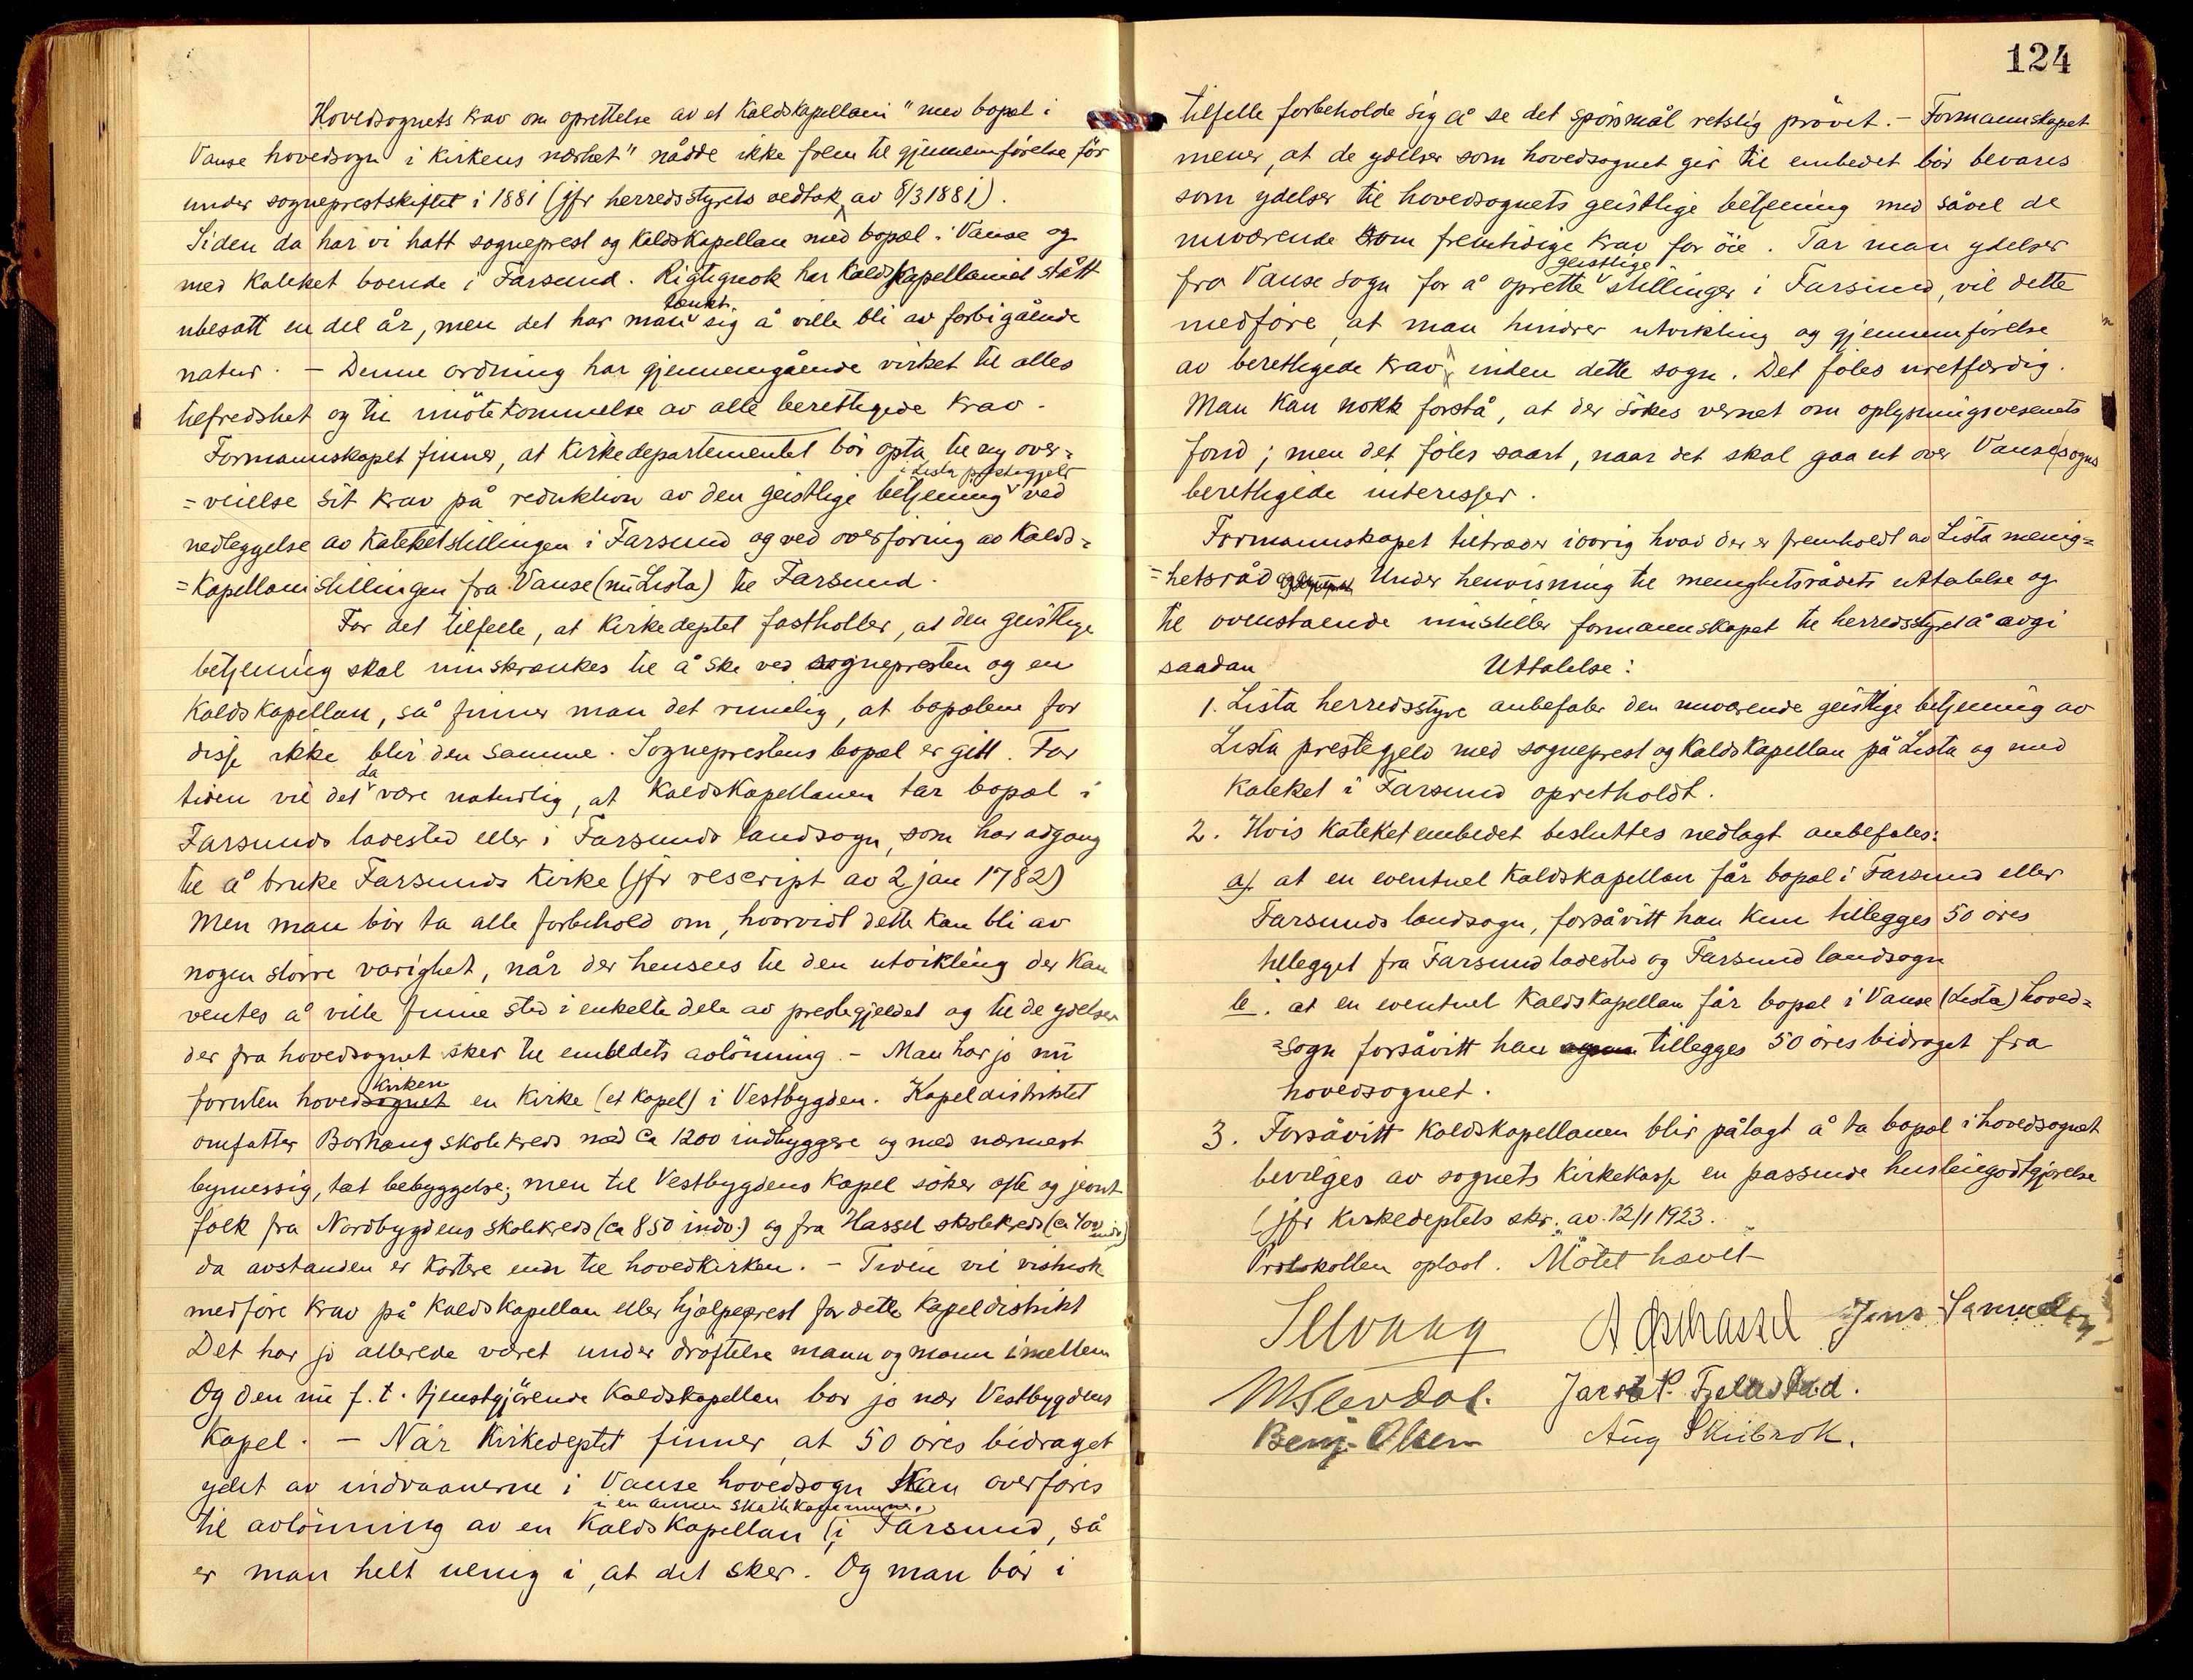 Hovedsognets krav om oprettelse av et kaldskapellani "med bopæl i
Vanse hovedsogn i kirkens nærhet" nådde ikke frem til gjennemförelse för
under sogneprestskiftet i 1881 (jfr herredsstyrets vedtak av 8/3 1881).
Siden da har vi hatt sogneprest og kaldskapellan med bopæl i Vanse og
med kateket boende i Farsund. Rigtignok har kaldskapellaniet stått
tænkt
ubesatt en del år, men det har man sig å ville bli av forbigående
natur. – Denne ordning har gjennemgående virket til alles
tilfredshet og til imötekommelse av alle berettigede krav.
Formannskapet finner, at Kirkedepartementet bör opta til ny over=
i Lista prestegjeld
=veielse sit krav på reduktion av den geistlige betjening ved
nedleggelse av kateketstillingen i Farsund og ved overföring av kalds=
=kapellanistillingen fra Vanse (nu Lista) til Farsund.
For det tilfelle, at Kirkedeptet fastholler, at den geistlige
betjening skal innskrænkes til å ske ved sognepresten og en
kaldskapellan, så finner man det rimelig, at bopælene for
disse ikke blir den samme. Sogneprestens bopæl er gitt. For
da
tiden vil det være naturlig, at kaldskapellanen tar bopæl i
Farsunds ladested eller i Farsunds landsogn, som har adgang
til å bruke Farsunds kirke (jfr rescript av 2 jan 1782)
Men man bör ta alle forbehold om, hvorvidt dette kan bli av
nogen större varighet, når der hensees til den utvikling der kan
ventes å ville finne sted i enkelte dele av prestegjeldet og til de ydelser
der fra hovedsognet sker til embedets avlönning. – Man har jo nu
kirken
foruten hovedsognet en kirke (et kapel) i Vestbygden. Kapeldistriktet
omfatter Borhaug skolekreds med ca 1200 indbyggere og med nærmest
bymessig, tæt bebyggelse; men til Vestbygdens kapel söker ofte og jevnt
folk fra Nordbygdens skolekreds (ca 850 indv.) og fra Hassel skolekreds (ca 400 indv)
da avstanden er kortere enn til hovedkirken. – Tiden vil visnok
medföre krav på kaldskapellan eller hjælpeprest for dette kapeldistrikt
Det har jo allerede været under dröftelse mann og mann imellem
Og den nu f.t. tjenstgjörende kaldskapellan bor jo nær Vestbygdens
kapel. – Når Kirkedeptet finner, at 50 öres bidraget
ydet av indvaanerne i Vanse hovedsogn kan overföres
i en annen skattekommune.
til avlönning av en kaldskapellan (i Farsund, så
er man helt uenig i, at det sker. Og man bör i
124
tilfelle forbeholde sig å se det spörsmål retslig prövet. – Formannskapet
mener, at de ydelser som hovedsognet gir til embedet bör bevares
som ydelser til hovedsognets geistlige betjening med såvel de
nuværende som fremtidige krav for öie. Tar man ydelser
geistlige
fra Vanse sogn for å oprette stillinger i Farsund, vil dette
medföre, at man hindrer utvikling og gjennemförelse
av berettigede krav inden dette sogn. Det föles uretfærdig.
Man kan nokk forstå, at der sökes vernet om oplysningsvesenets
fond; men det föles saart, naar det skal gaa ut over Vanse sogns
berettigede interesser.
Formannskapet tiltræder iövrig hvad der er fremholdt av Lista menig=
=hetsråd Under henvisning til menighetsrådets uttalelse og
til ovenstaende innstiller formannskapet til herredsstyret å avgi
saadan Uttalelse:
1. Lista herredsstyre anbefaler den nuværende geistlige betjening av
Lista prestegjeld med sogneprest og kaldskapellan på Lista og med
kateket i Farsund opretholdt.
2. Hvis kateketembedet besluttes nedlagt anbefales:
a). at en eventuel kaldskapellan får bopæl i Farsund eller
Farsunds landsogn, forsåvitt han kun tillegges 50 öres
tillegget fra Farsund ladested og Farsund landsogn
b. at en eventuel kaldskapellan får bopæl i Vanse (Lista) hoved=
=sogn forsåvitt han tillegges 50 öres bidraget fra
hovedsognet.
3. Forsåvitt kaldskapellanen blir pålagt å ta bopæl i hovedsognet
bevilges av sognets kirkekasse en passende husleiegodtgjörelse
(jfr Kirkedeptets skr. av 12/1 1923.
Protokollen oplæst. Mötet hævet
Jens Samuelsen
Jarstk P. Fjellestad.
Benj. Olsen Aug Skeibrok.